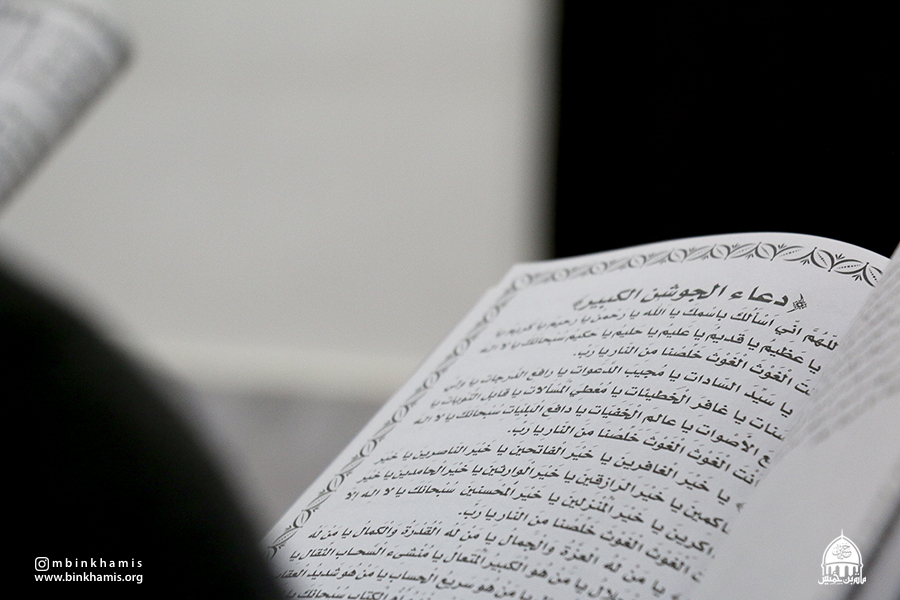 دعاء الجوشن الكبير
للَّهُمَّ اني أسألك باسمك يا الله يا رحمن يا رحيم يا كريم يا
يا عظيم يا قديم يا عليم يا حليم يا حكيم سبحانك يا لا اله
الغوث الغوث خلصنا من النار يا رب.
يا سيد السادات يا مجيب الدعوات يا رافع الدرجات يا ولي
يا غافر الخطيئات يا معطي المسألات يا قابل التوبات يا
الأصوات يا عالم الخفيات يا دافع البليات سبحانك يا لا اله
أنت الغوث الغوث خلصنا من النار يا رب.
يا خير الغافرين يا خير الفاتحين يا خير الناصرين يا خير
يا خير الرازقين يا خير الوارثين يا خير الحامدين يا خير
يا خير المنزلين يا خير المحسنين سبحانك يا لا اله إلا
الغوث الغوث خلصنا من النار يا رب.
يا من له العزة والجمال يا من له القدرة والكمال يا من له
يا من هو الكبير المتعال يا منشىء السحاب الثقال يا
يا من هو سريع الحساب يا من هو شديد العقاب
mbinkhamis
www.binkhamis.org